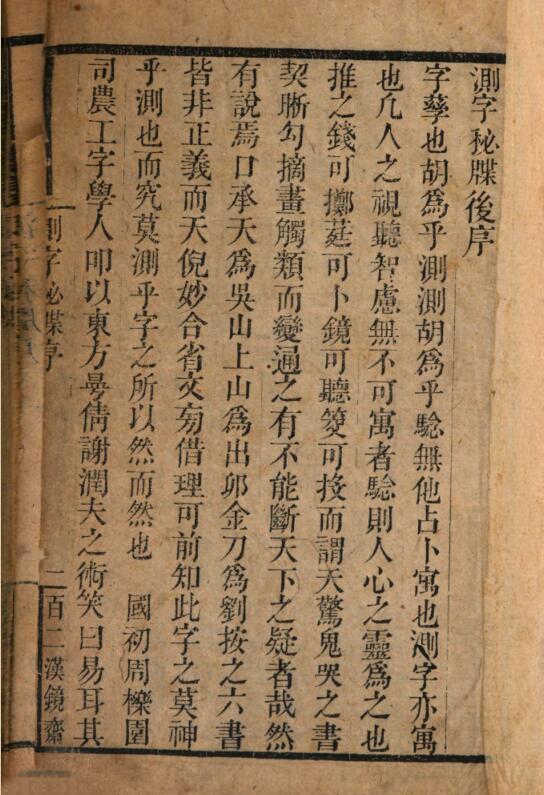 測字秘牒後序
字孳也胡爲乎測測胡爲乎驗無他占卜寓也測字亦寓
也凡人之視聽智慮無不可寓者驗則人心之靈爲之也
推之錢可擲莛可卜鏡可聽筊可投而謂天驚鬼哭之書
契晰勾摘畫觸類而變通之有不能斷天下之疑者哉然
有說焉口承天爲吳山上山爲出卯金刀爲劉按之六書
皆非正義而天倪妙合省文旁借理可前知此字之莫神
乎測也而究莫測乎字之所以然而然也 國初周櫟園
司農工字學人叩以東方曼倩謝潤夫之術笑曰易耳其
測字秘牒序 二百二漢鏡齋